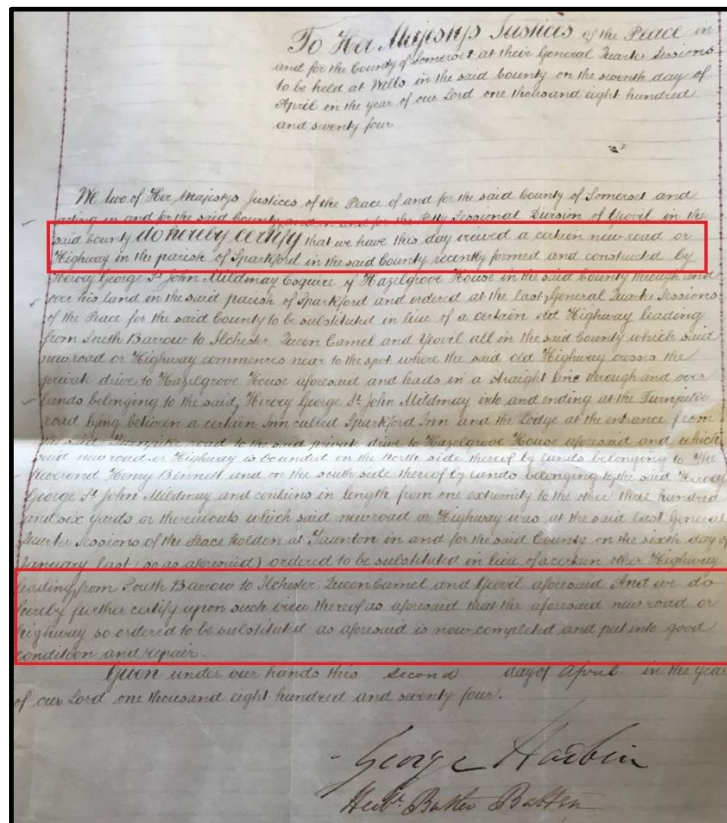 To Her Majestys Justices of the Peace in
and for the County of Somerset at their General Quarter Sessions
to be held at Wells in the said County on the seventh day of
April in the year of our Lord one thousand eight hundred
and seventy four
We two of Her Majestys Justices of the Peace of and for the said County of Somerset and
acting in and for the said County and in and for the Petty Sessional Division of Yeovil in the
said County do hereby certify that we have this day viewed a certain new road or
Highway in the parish of Sparkford in the said County recently formed and constructed by
Hervey George St John Mildmay Esquire of Hazelgrove House in the said County through and
over his land in the said parish of Sparkford and ordered at the last General Quarter Sessions
of the Peace for the said County to be substituted in lieu of a certain old Highway leading
from South Barrow to Ilchester Queen Camel and Yeovil all in the said County which said
new road or Highway commences near to the spot where the said old Highway crosses the
private drive to Hazelgrove House aforesaid and leads in a straight line through and over
lands belonging to the said Hervey George St John Mildmay into and ending at the Turnpike
road lying between a certain Inn called Sparkford Inn and the Lodge at the entrance from
the said Turnpike road to the said private drive to Hazelgrove House aforesaid and which
said new road or Highway is bounded on the North side thereof by lands belonging to The
Reverend Henry Bennett and on the south side thereof by lands belonging to the said Hervey
George St John Mildmay and contains in length from one extremity to the other three hundred
and six yards or thereabouts which said new road or Highway was at the said last General
Quarter Sessions of the Peace holden at Taunton in and for the said County on the sixth day of
January last (so as aforesaid) ordered to be substituted in lieu of a certain other Highway
leading from South Barrow to Ilchester Queen Camel and Yeovil aforesaid And we do
hereby further certify upon such view thereof as aforesaid that the aforesaid new road or
Highway so ordered to be substituted as aforesaid is now completed and put into good
condition and repair.
Given under our hands this second day of April in the year
of our Lord one thousand eight hundred and seventy four.
George Harbin
Batten